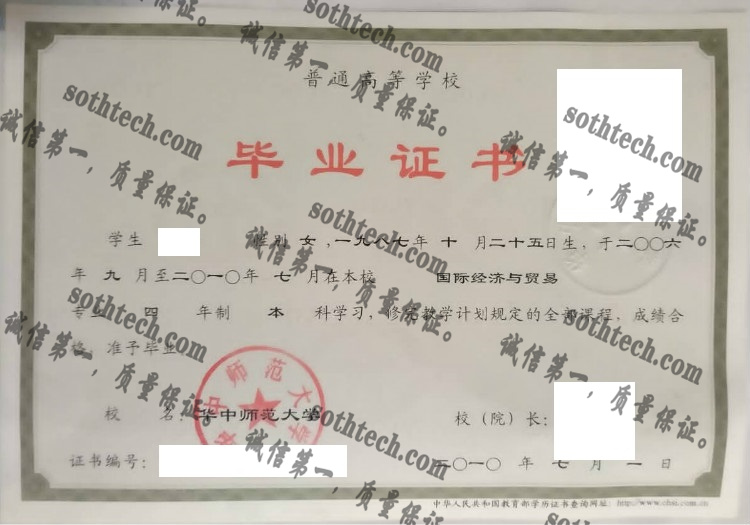 普通高等学校
毕业证书
学生 性别 女，一九八七年 十 月二十五日生，于二〇〇六
年 九 月至二〇一〇年 七 月在本校 国际经济与贸易
专业 四 年制 本 科学习，修完教学计划规定的全部课程，成绩合
格，准予毕业。
校 名：华中师范大学
校（院）长：
证书编号：
二〇一〇 年 七 月 一 日
中华人民共和国教育部学历证书查询网址：http://www.chsi.com.cn
华中师范大学
sothtech.com
诚信第一，质量保证。
sothtech.com
诚信第一，质量保证。
sothtech.com
诚信第一，质量保证。
sothtech.com
诚信第一，质量保证。
sothtech.com
诚信第一，质量保证。
sothtech.com
诚信第一，质量保证。
sothtech.com
诚信第一，质量保证。
sothtech.com
诚信第一，质量保证。